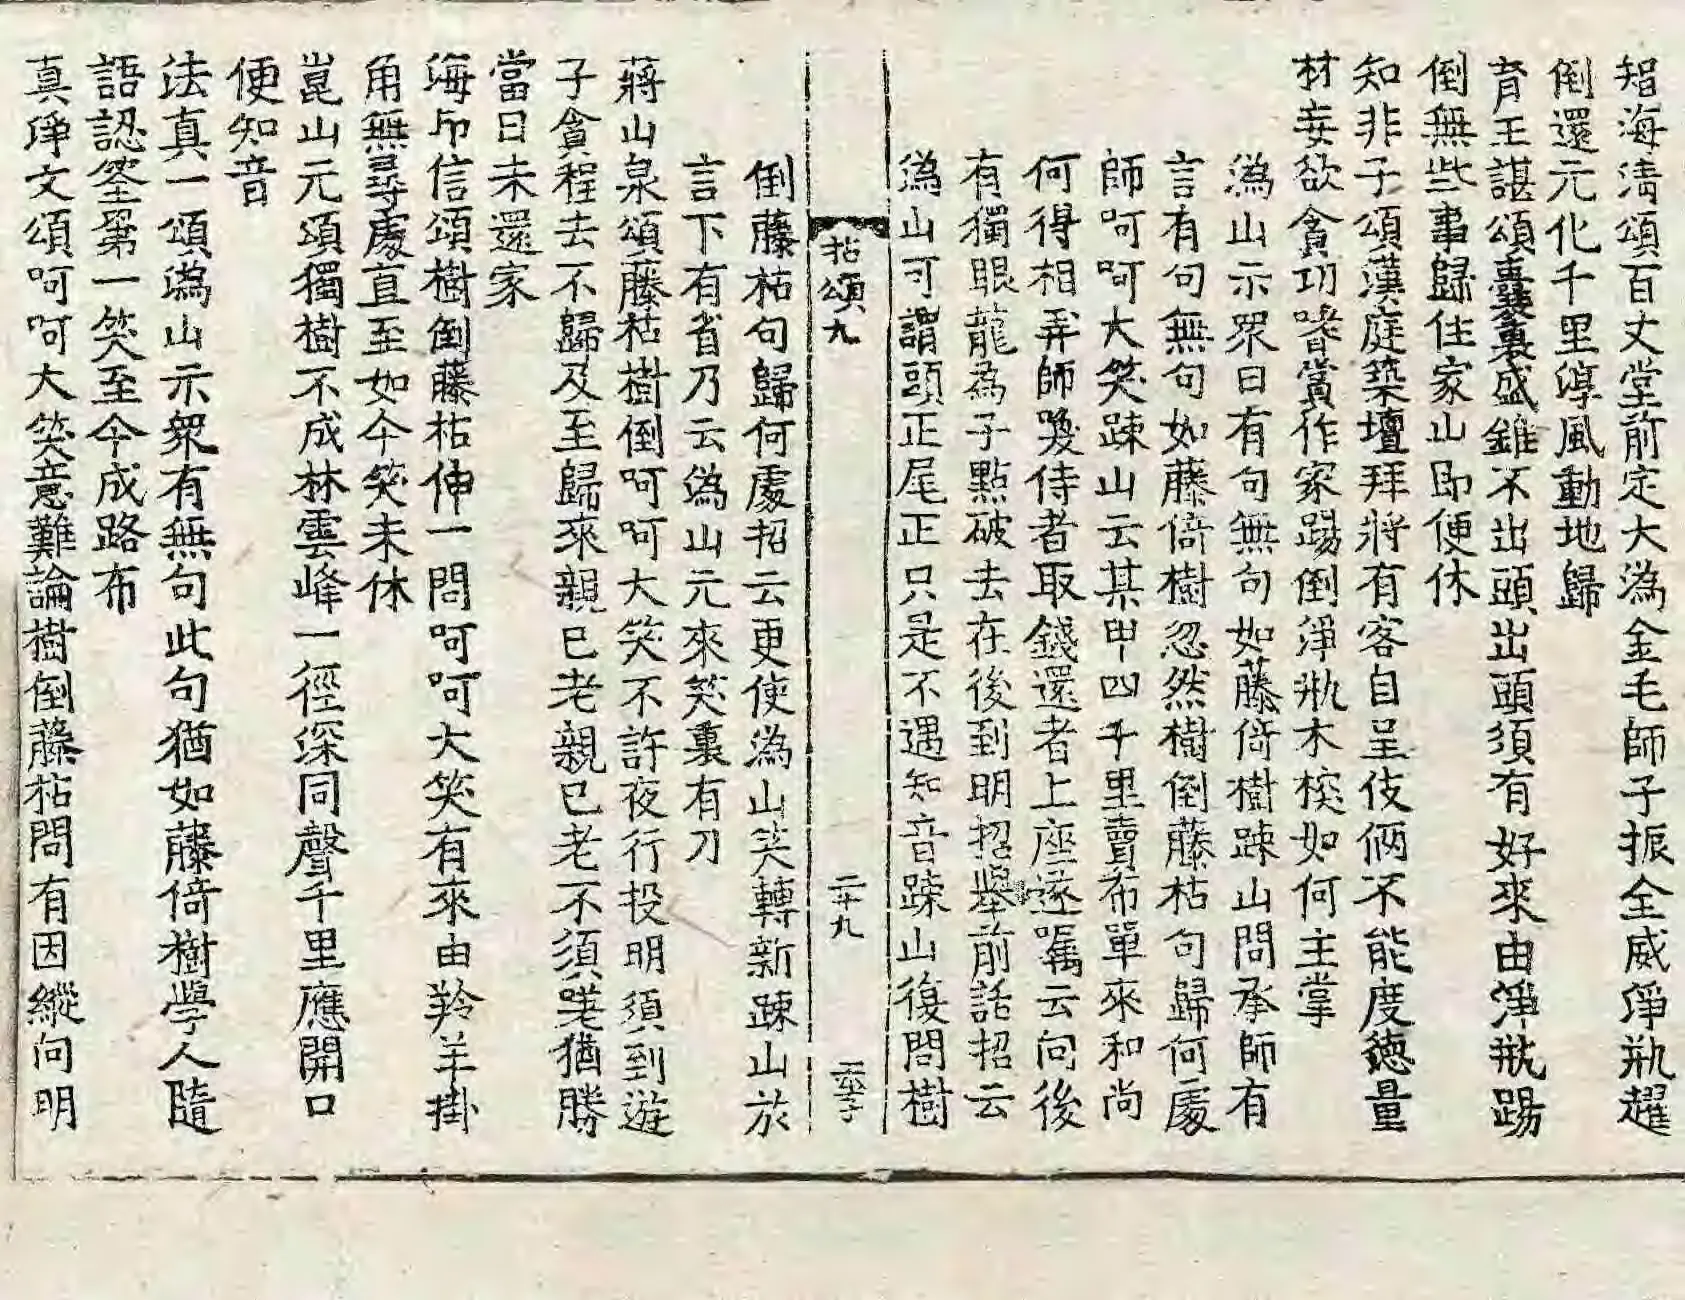 智海清頌百丈堂前定大潙金毛師子振全威淨瓶趯
倒還元化千里淳風動地歸
育王諶頌囊裏盛錐不出頭出頭須有好來由淨瓶踢
倒無些事歸住家山即便休
知非子頌漢庭築壇拜將有客自呈伎倆不能度德量
材妄欲貪功嗜賞作家踢倒淨瓶木𣔻如何主掌
潙山示眾曰有句無句如藤倚樹踈山問承師有
言有句無句如藤倚樹忽然樹倒藤枯句歸何處
師呵呵大笑踈山云某甲四千里賣布單來和尚
何得相弄師喚侍者取錢還者上座遂囑云向後
有獨眼龍為子點破去在後到明招舉前話招云
潙山可謂頭正尾正只是不遇知音踈山復問樹
拈頌九
二十九
倒藤枯句歸何處招云更使潙山笑轉新踈山於
言下有省乃云潙山元來笑裏有刀
蔣山泉頌藤枯樹倒呵呵大笑不許夜行投明須到遊
子貪程去不歸及至歸來親已老親已老不須㗖猶勝
當日未還家
海印信頌樹倒藤枯伸一問呵呵大笑有來由羚羊掛
角無尋處直至如今笑未休
崑山元頌獨樹不成林雲峰一徑深同聲千里應開口
便知音
法真一頌潙山示眾有無句此句猶如藤倚樹學人隨
語認筌第一笑至今成路布
真淨文頌呵呵大笑意難論樹倒藤枯問有因縱向明